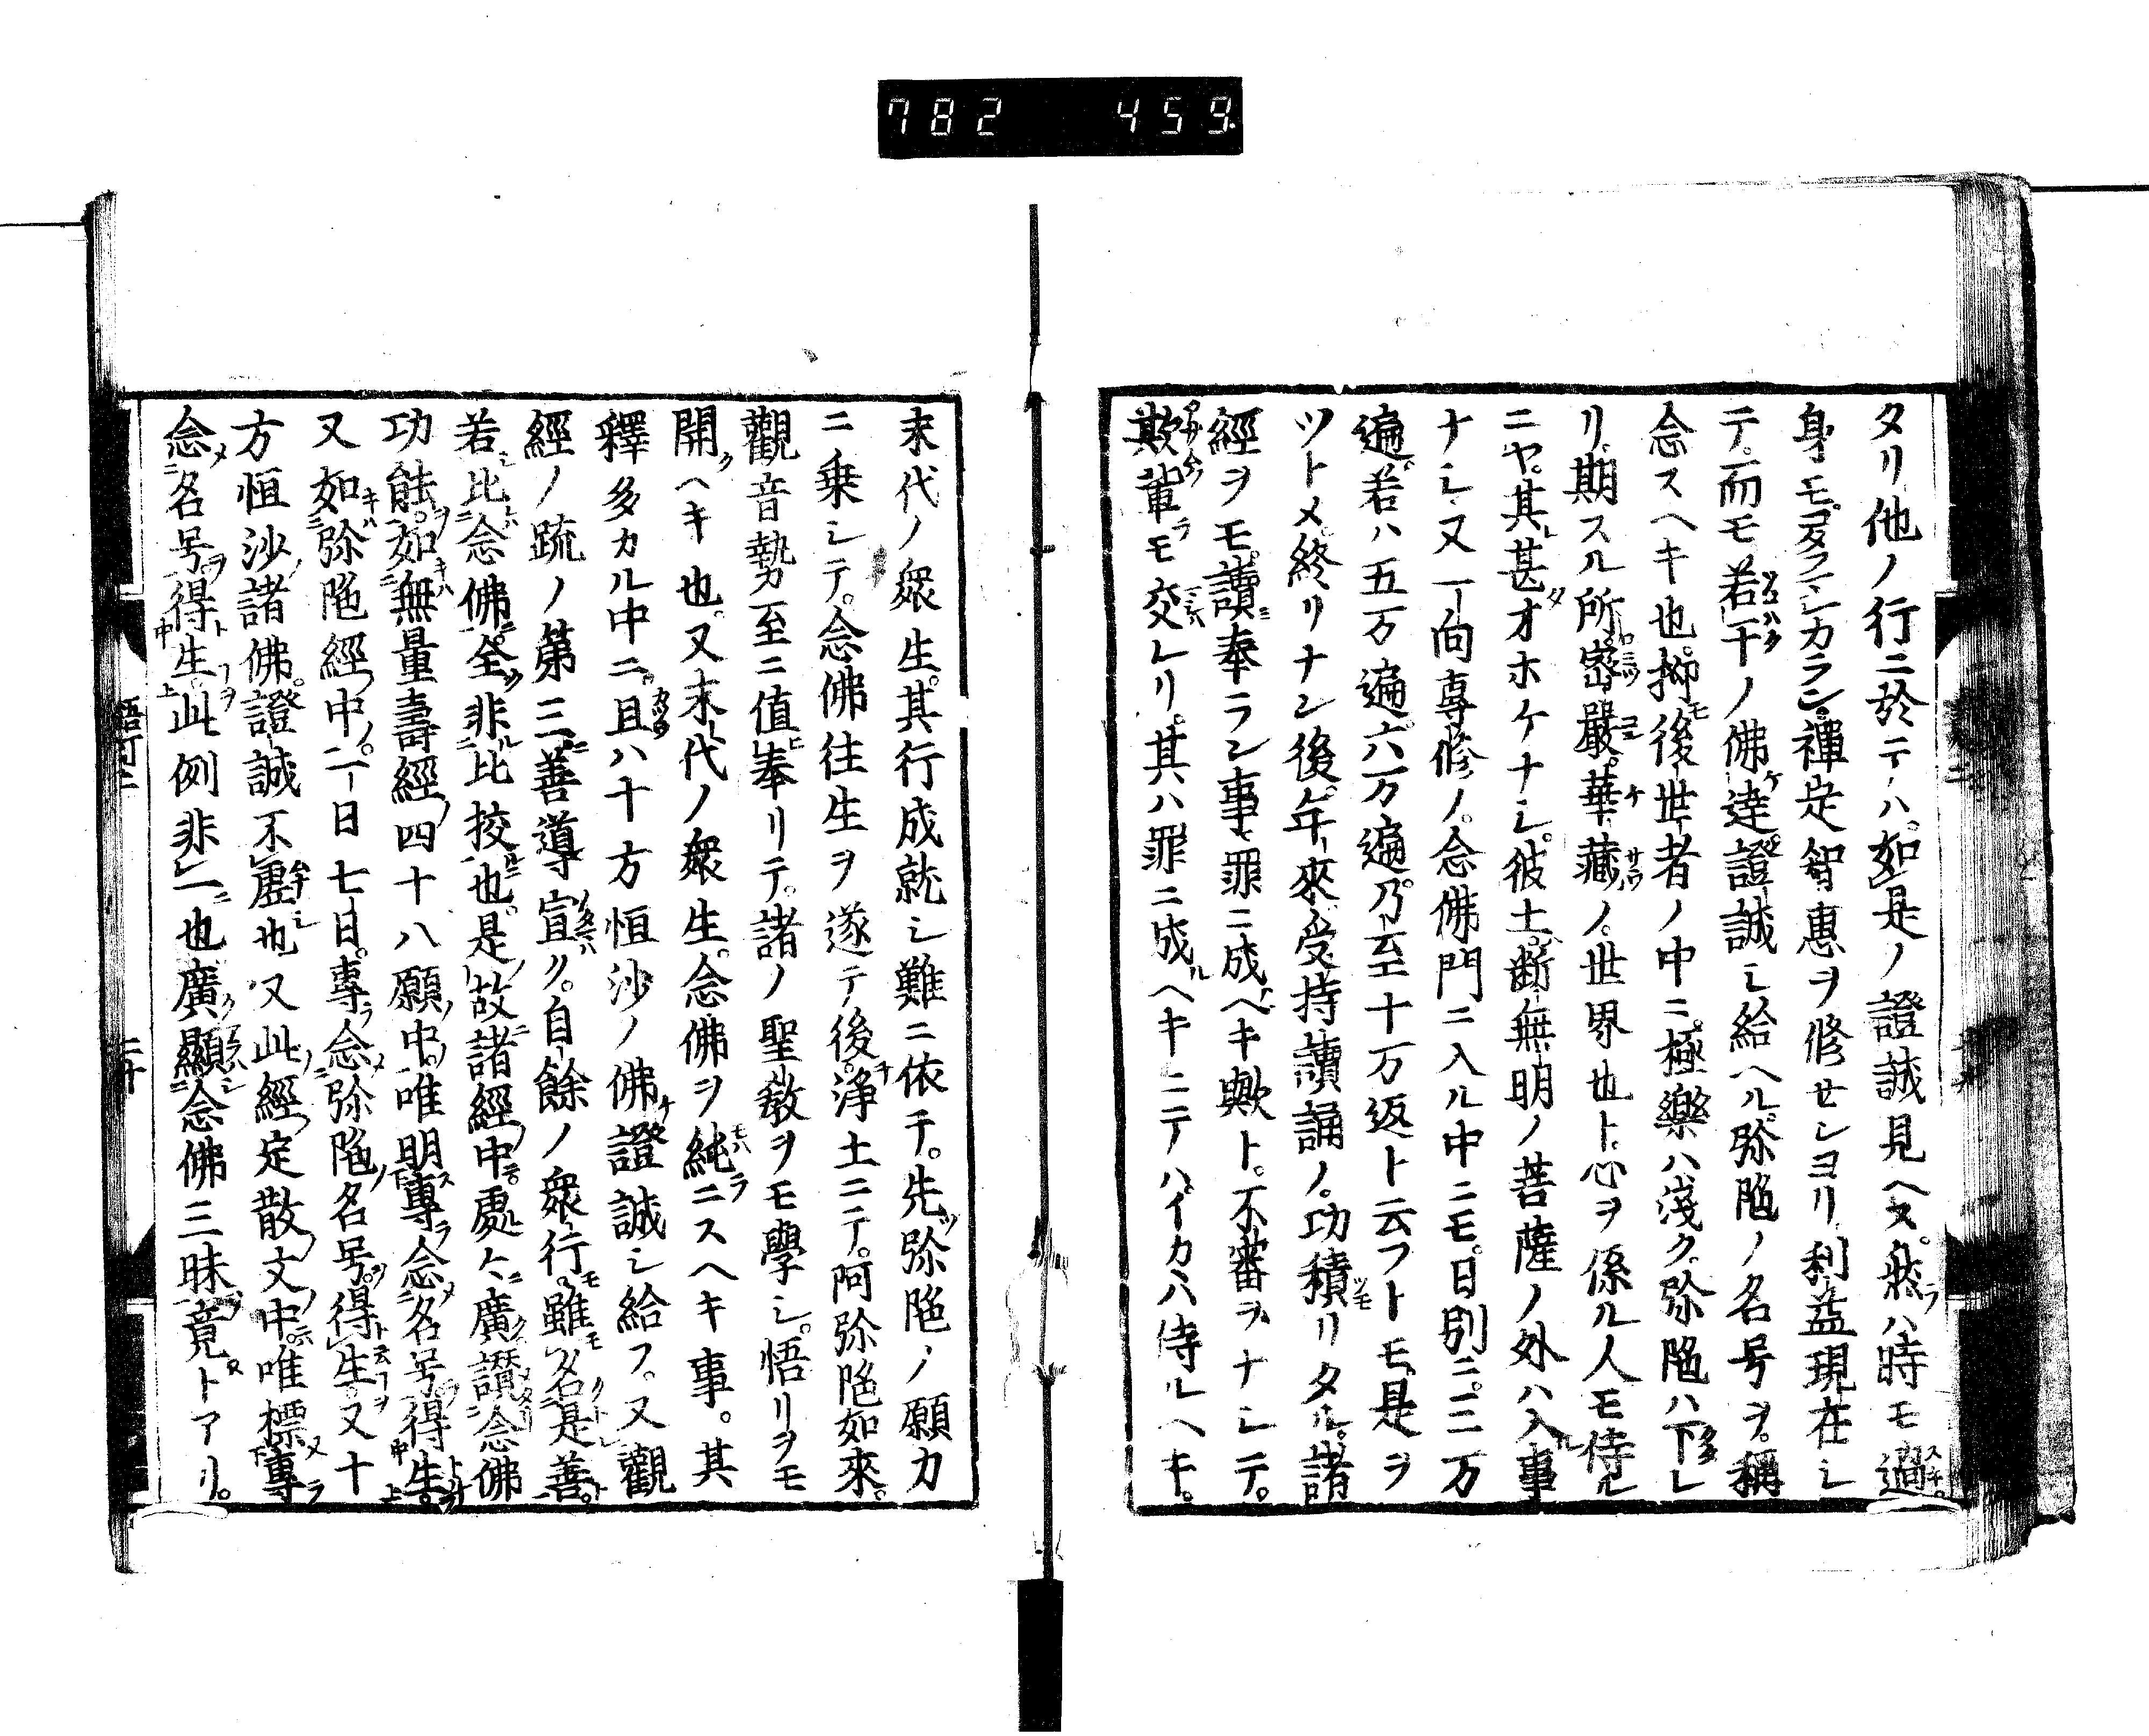 782 459.
タリ他ノ行ニ於テハ。如是ノ證誠見ヘス。然ハ時モ過
身モ。又ランカラン。禪定智惠ヲ修セシヨリ利益現在シ
テ。而モ若干ノ佛達證誠シ給ヘル。弥陁ノ名号ヲ。稱
念スヘキ也。抑後世者ノ中ニ。極樂ハ淺ク弥陁ハ下レ
リ。期スル所密嚴。華藏ノ。世界也ト。心ヲ係ル人モ侍ル
ニヤ。其甚オホケナシ。彼土。斷無明ノ菩薩ノ外ハ入事
ナシ又一向専修ノ。念佛門ニ入ル中ニモ。日別ニ。二万
遍。若ハ五万遍。六万遍。乃至十万返ト云フトモ、是ヲ
ツトメ終リナン後。年來受持讀誦ノ。功積リタル。諸
經ヲモ。讀奉ラン事罪ニ成ヘキ歟ト。不審ヲナシテ。
欺輩モ交レリ。其ハ罪ニ成ヘキニテハ。イカハ侍ルヘキ。
末代ノ衆生。其行成就シ難ニ依テ。先弥陁ノ願力
ニ乗シテ。念佛往生ヲ遂テ後。浄土ニテ。阿弥陁如來。
觀音勢至ニ値奉リテ。諸ノ聖教ヲモ學シ。悟リヲモ
開ヘキ也。又末代ノ衆生。念佛ヲ純ニスヘキ事。其
釋多カル中ニ。且ハ十方恒沙ノ佛證誠シ給フ。又觀
經ノ疏ノ第三善導宣ク。自餘ノ衆行。雖名是善。
若比念佛。全非比挍也。是故諸經中。處々廣讃念佛
功能。如無量壽經四十八願中。唯明專念名号得生。
又如弥陁經中。一日七日。專念弥陁名号。得生。又十
方恒沙諸佛。證誠不虛也又此經定散文中。唯標專
念名号。得生。此例非一也廣顯念佛三昧竟トアリ。